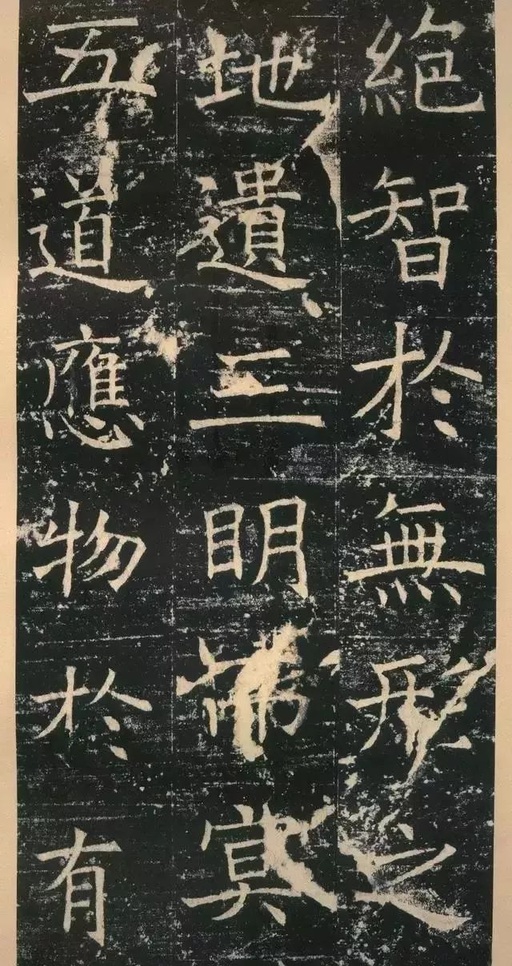 絶智於無形之
地遺三明冥
五道應物於有